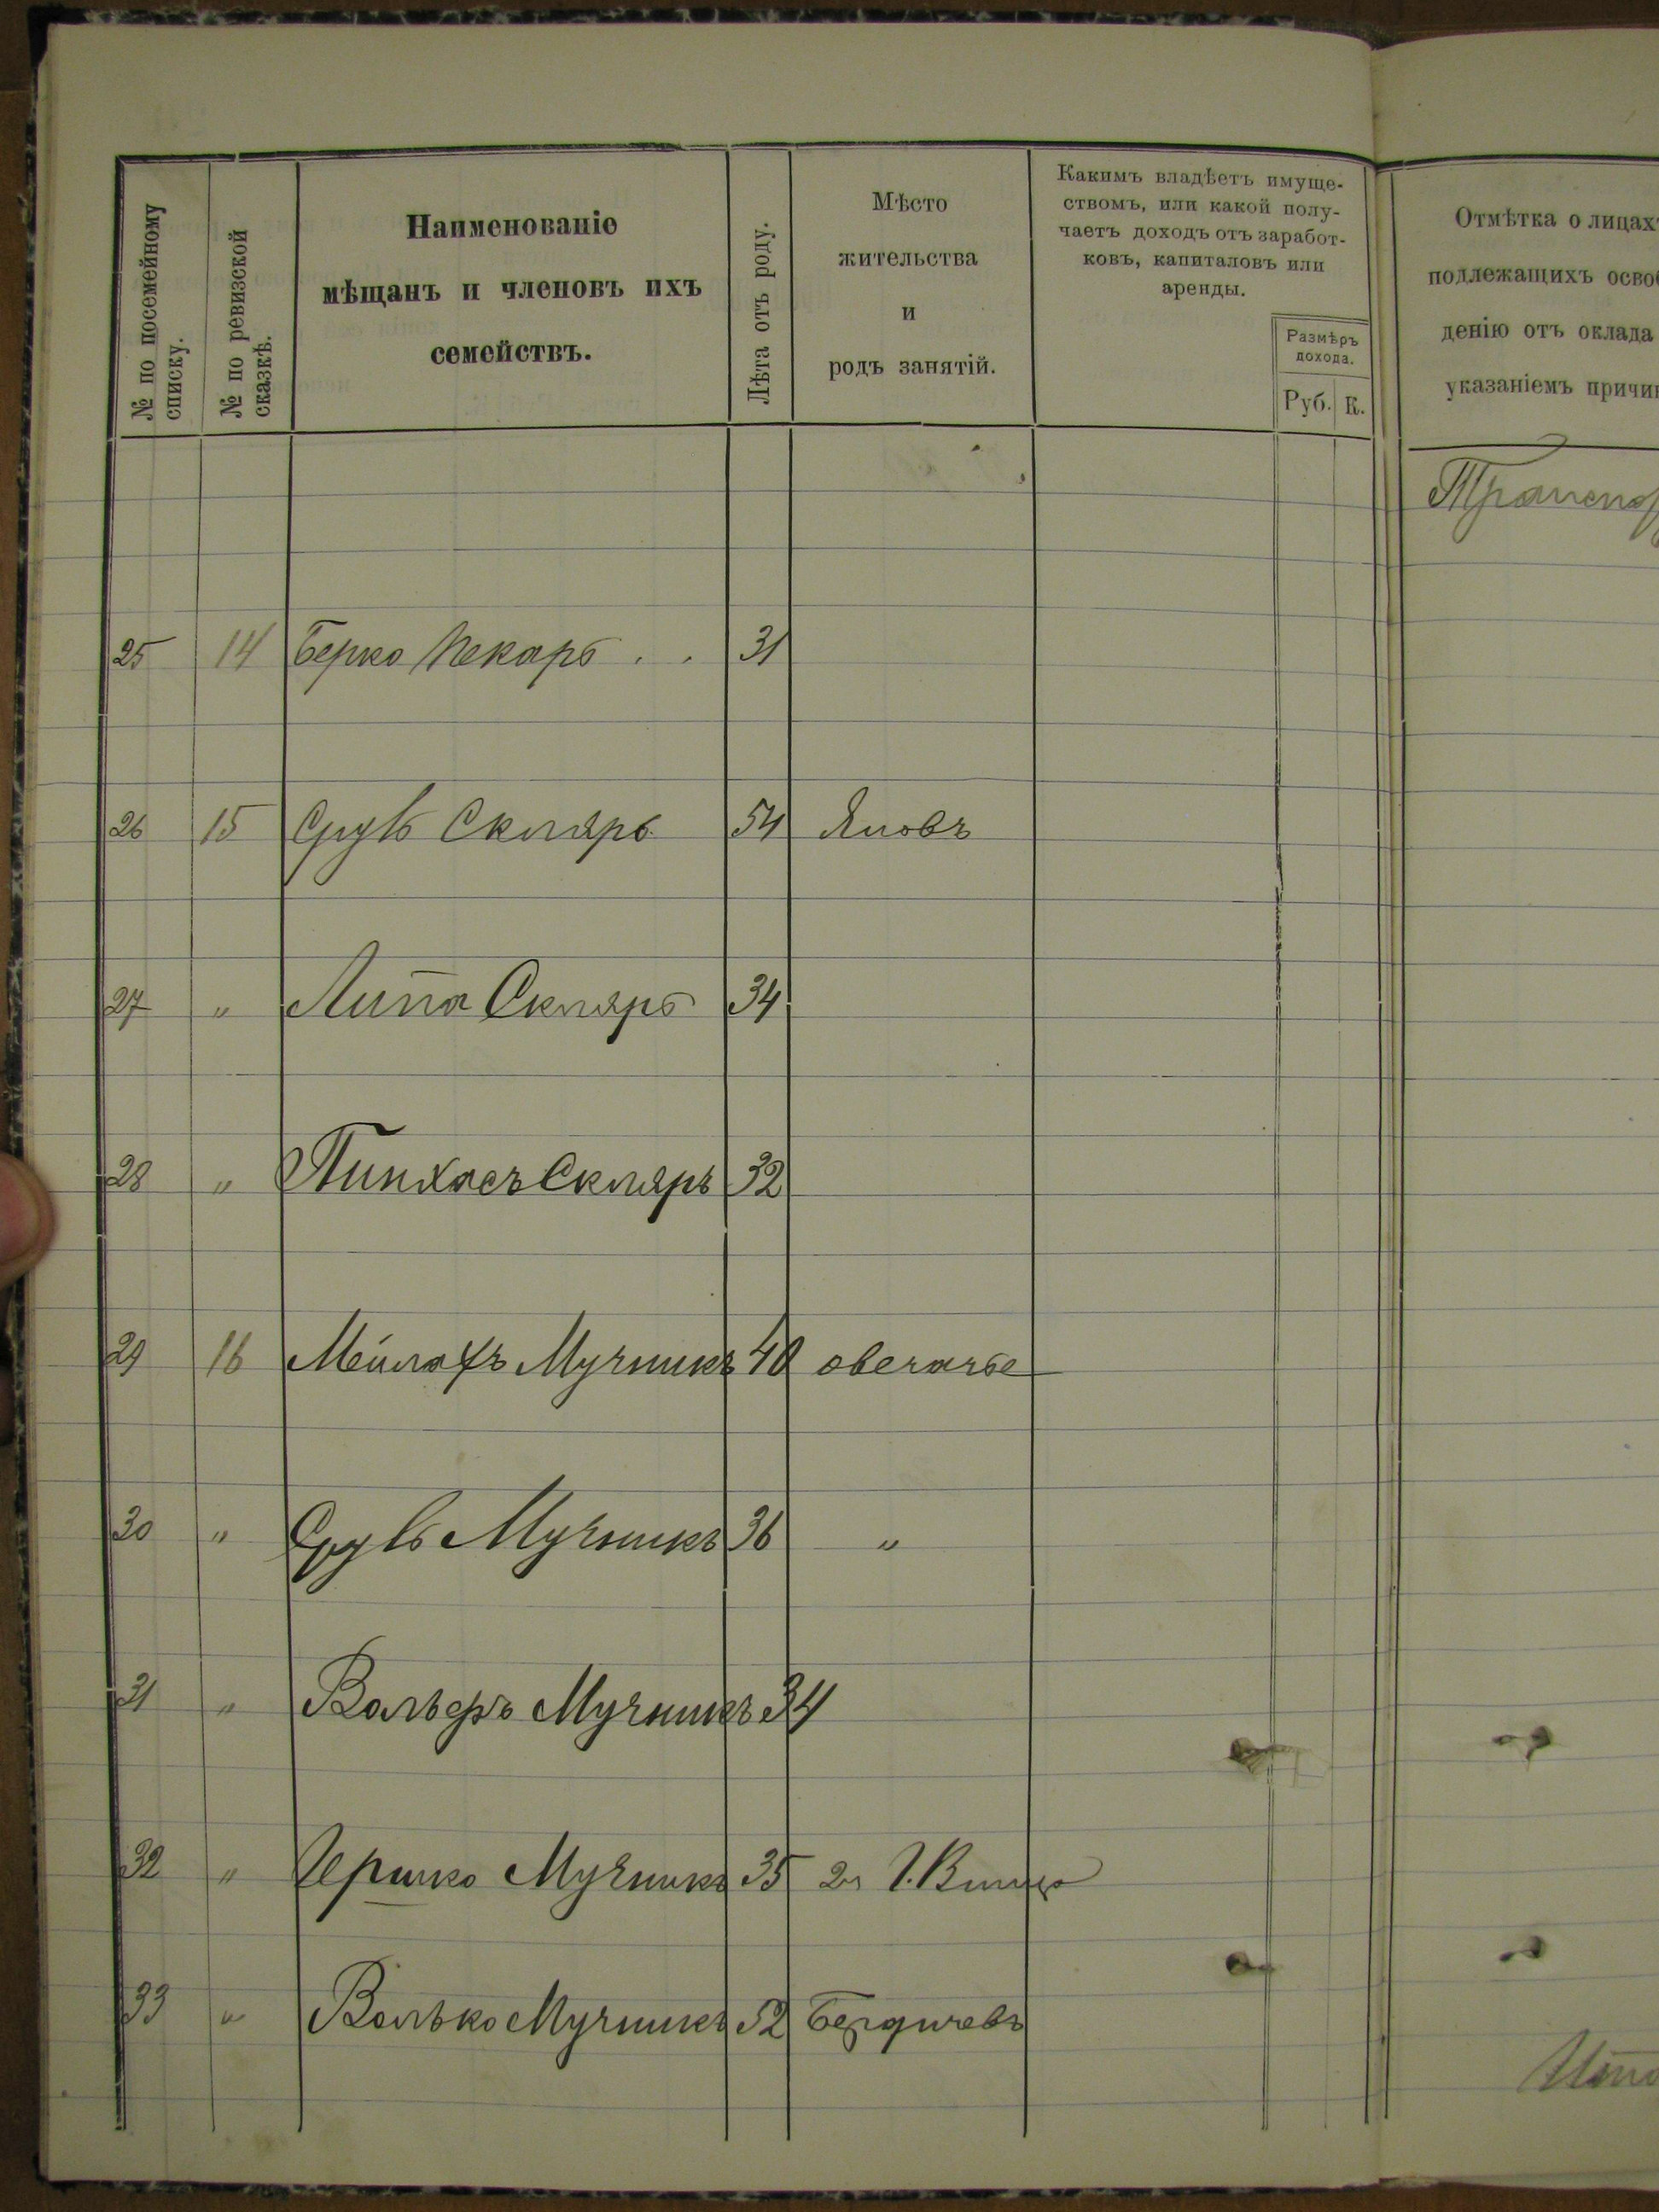 № по посемейному списку.
№ по ревизской сказкѣ.
Наименованіе
мѣщанъ и членовъ ихъ
семействъ.
Лѣта отъ роду.
Мѣсто
жительства
и
родъ занятій.
Какимъ владѣетъ имуще-
ствомъ, или какой полу-
чаетъ доходъ отъ заработ-
ковъ, капиталовъ или
аренды.
Размѣръ
дохода.
Руб. К.
Отмѣтка о лицахъ
подлежащихъ освоб
денію отъ оклада
указаніемъ причин
Транспор
25 14 Берко Пекарь . . 31
26 15 Сруль Скляръ 54 Яновъ
27 " Липа Скляръ 34
28 " Пинхасъ Скляръ 32
29 16 Мейлахъ Мучникъ 40 овечачье
30 " Сруль Мучникъ 36 "
31 " Вольфъ Мучникъ 34
32 " Гершко Мучникъ 35
33 " Волько Мучникъ 52 Бердичевъ
Ито